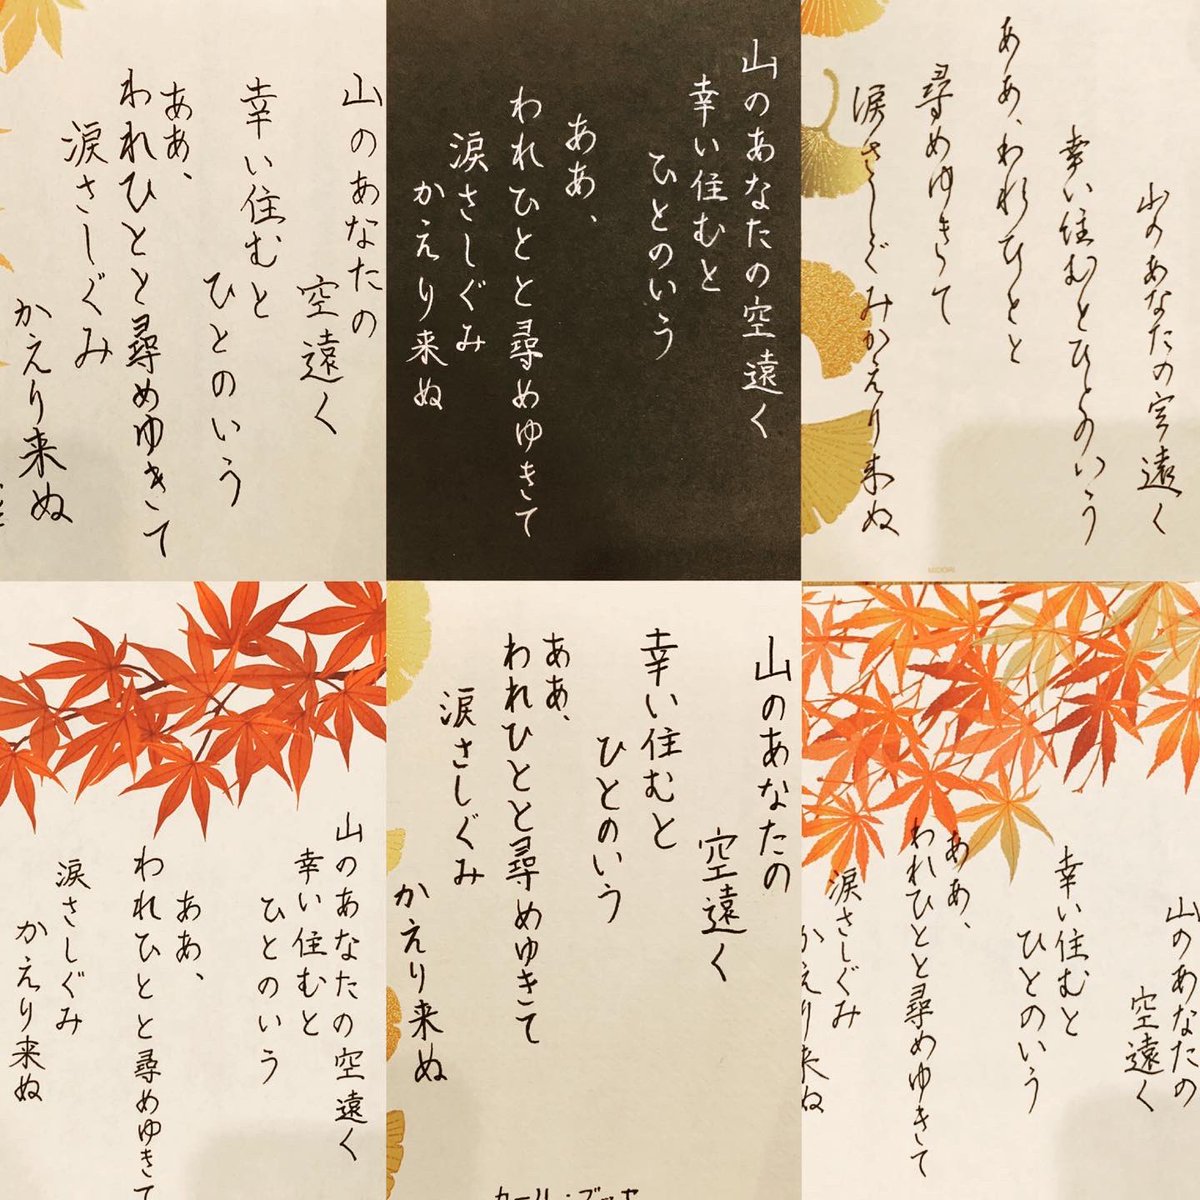 山のあなたの
空遠く
幸い住むと
ひとのいう
ああ、
われひとと尋めゆきて
涙さしぐみ
かえり来ぬ
山のあなたの空遠く
幸い住むと
ひとのいう
ああ、
われひとと尋めゆきて
涙さしぐみ
かえり来ぬ
山のあなたの空遠く
幸い住むとひとのいう
ああ、われひとと
尋めゆきて
涙さしぐみかえり来ぬ
MIDORI
山のあなたの空遠く
幸い住むと
ひとのいう
ああ、
われひとと尋めゆきて
涙さしぐみ
かえり来ぬ
山のあなたの
空遠く
幸い住むと
ひとのいう
ああ、
われひとと尋めゆきて
涙さしぐみ
かえり来ぬ
カール・ブッセ
山のあなたの
空遠く
幸い住むと
ひとのいう
ああ、
われひとと尋めゆきて
涙さしぐみ
かえり来ぬ